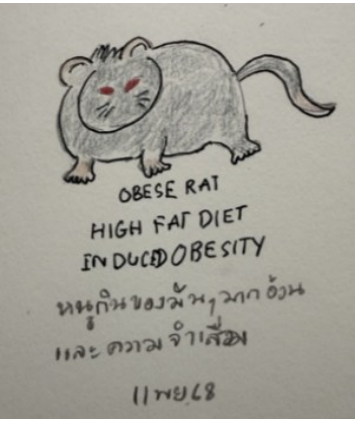 OBESE RAT
HIGH FAT DIET
INDUCED OBESITY
หนูกินของมันๆมากอ้วน
และความจำเสื่อม
11 พย.68